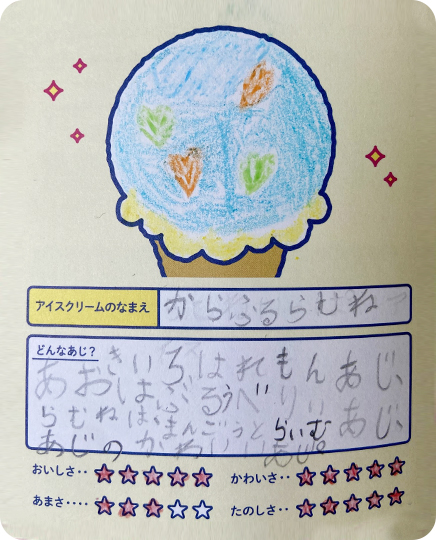 アイスクリームのなまえ
からふるらむね
どんなあじ?
きいろはれもんあじ、
あおはぶるうべりいあじ、
らむねはまんごうとらいむ
あじのかわいいあじ。
おいしさ‥
かわいさ‥
あまさ‥‥
たのしさ‥